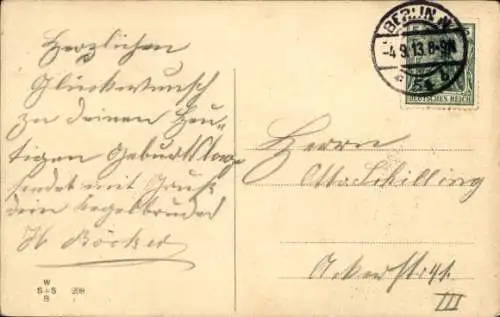 Herzlichen
Glückwunsch
zu deinen Heu-
tigen Geburtstage
sendet mit Gruß
dein Kegelbruder
H Böcker
W
S+S
B
BERLIN N
-4.9.13.8-9N
54 b
DEUTSCHES REICH
Herrn
Otto Schilling
Ackerstr.
III